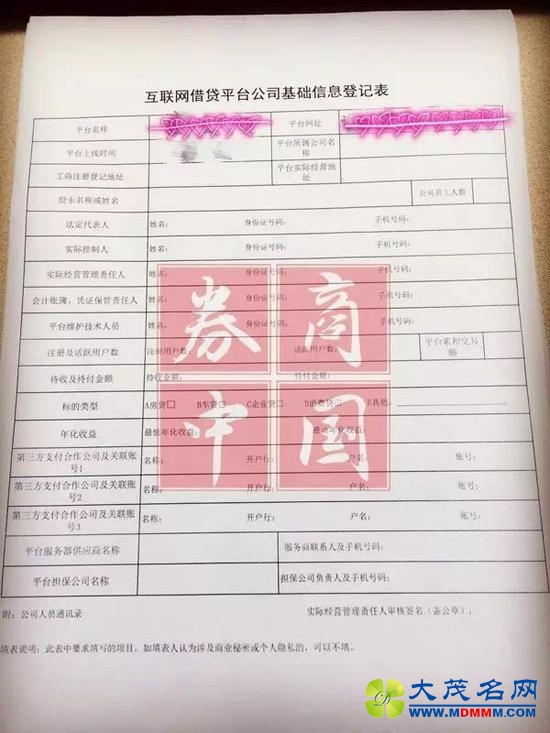 互联网借贷平台公司基础信息登记表
平台名称 平台网址
平台上线时间 平台所属公司名称
工商注册登记地址 平台实际经营地址
股东名称或姓名 公司员工人数
法定代表人 姓名: 身份证号码: 手机号码:
实际控制人 姓名: 身份证号码: 手机号码:
实际经营管理责任人 姓名: 身份证号码: 手机号码:
会计账簿、凭证保管责任人 姓名: 身份证号码: 手机号码:
平台维护技术人员 姓名: 身份证号码: 手机号码:
注册及活跃用户数 注册用户数: 活跃用户数: 平台累积交易额
待收及待付金额 待收金额: 待付金额:
标的类型 A房贷□ B车贷□ C企业贷□ D消费贷□ E其他:
年化收益 最低年化收益: 最高年化收益:
第三方支付合作公司及关联账号1 名称: 开户行: 户名: 账号:
第三方支付合作公司及关联账号2 名称: 开户行: 户名: 账号:
第三方支付合作公司及关联账号3 名称: 开户行: 户名: 账号:
平台服务器供应商名称 服务商联系人及手机号码:
平台担保公司名称 担保公司负责人及手机号码:
附: 公司人员通讯录 实际经营管理责任人审核签名(盖公章):
填表说明: 此表中要求填写的项目, 如填表人认为涉及商业秘密或个人隐私的, 可以不填。
券商
中国
大茂名网
WWW.MDMMM.COM